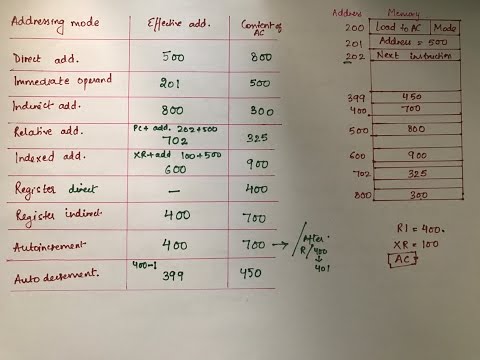 Addressing mode Effective add. Content of AC
Direct add. 500 800
Immediate operand 201 500
Indirect add. 800 300
Relative add. PC+ add. 202+500 702 325
Indexed add. XR+add 100+500 600 900
Register direct — 400
Register indirect 400 700
Autoincrement 400 700 → After R1 400 ↓ 401
Auto decrement. 400-1 399 450
Address Memory
200 Load to AC Mode
201 Address = 500
202 Next instruction
399 450
400 700
500 800
600 900
702 325
800 300
R1 = 400.
XR = 100
AC